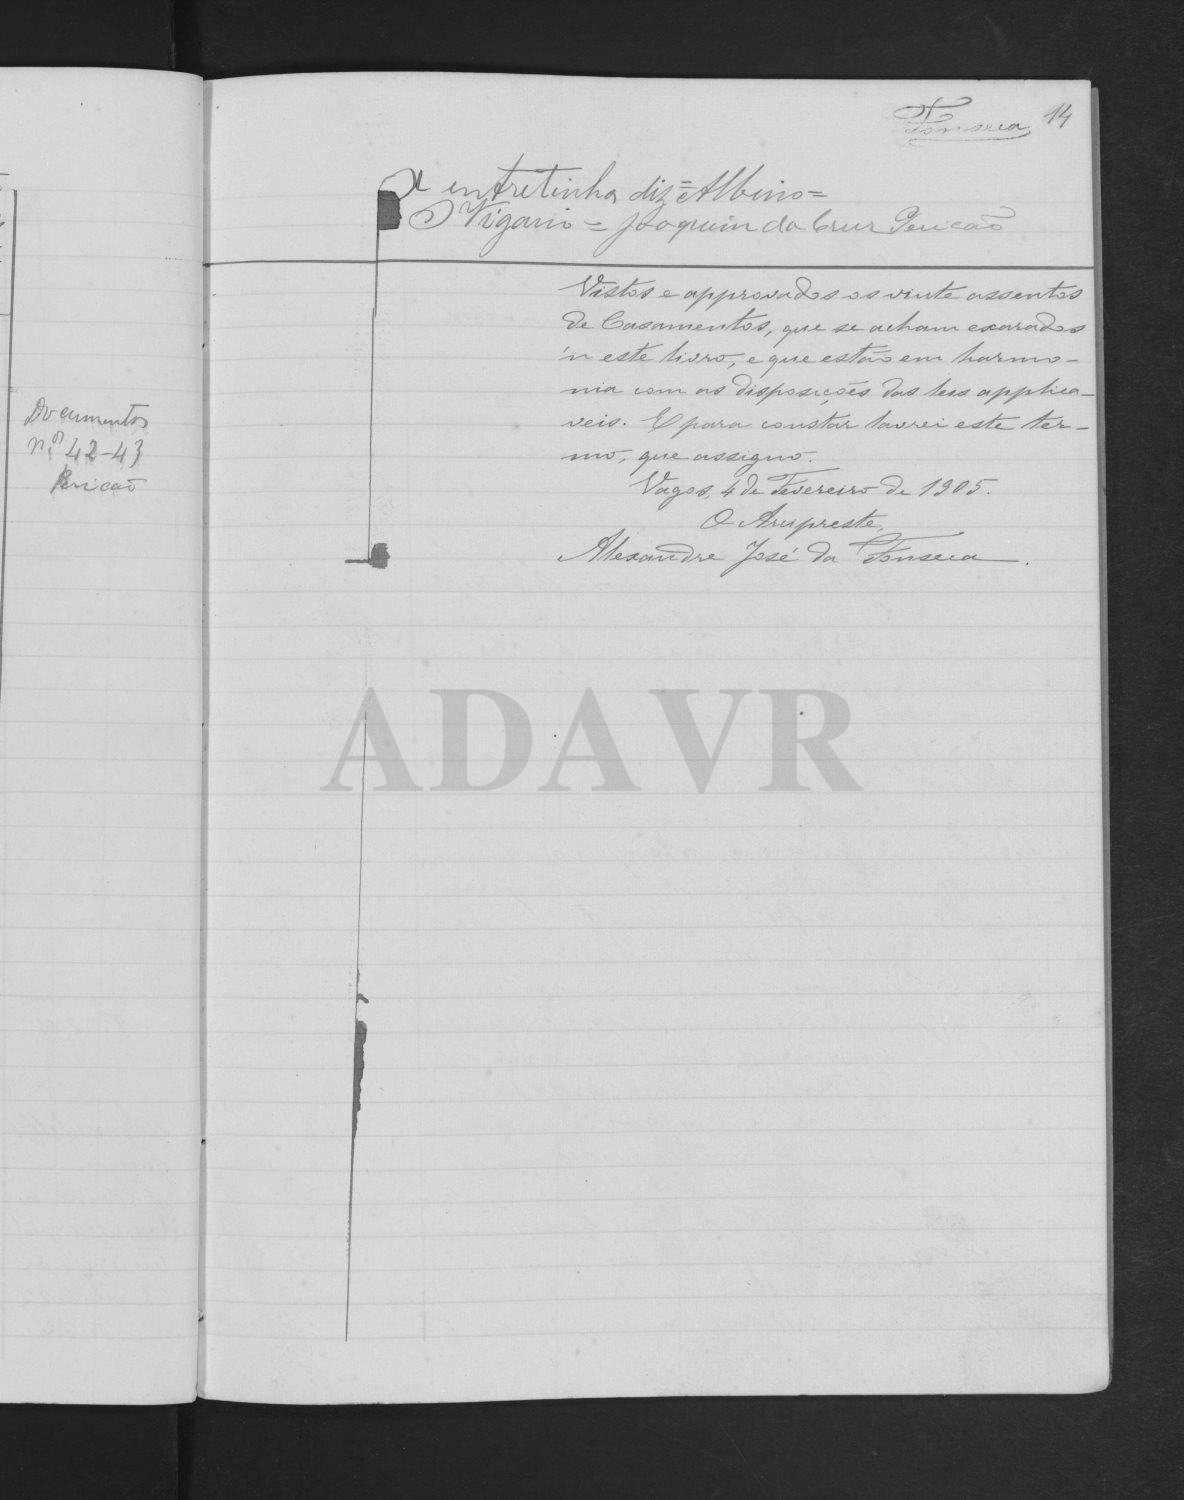 Fonseca 14
A entrelinha diz = Albino =
O Vigario = Joaquim da Cruz Pericão
Documentos
n.os 42-43
Pericão
Vistos e approvados os vinte assentos
de Casamentos, que se acham exarados
n'este livro, e que estão em harmo-
nia com as disposições das leis applica-
veis. E para constar lavrei este ter-
mo, que assigno.
Vagos, 4 de Fevereiro de 1905.
O Arcipreste,
Alexandre José da Fonseca.
ADAVR